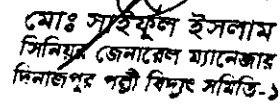 মোঃ সাইফুল ইসলাম
সিনিয়র জেনারেল ম্যানেজার
দিনাজপুর পল্লী বিদ্যুৎ সমিতি-১